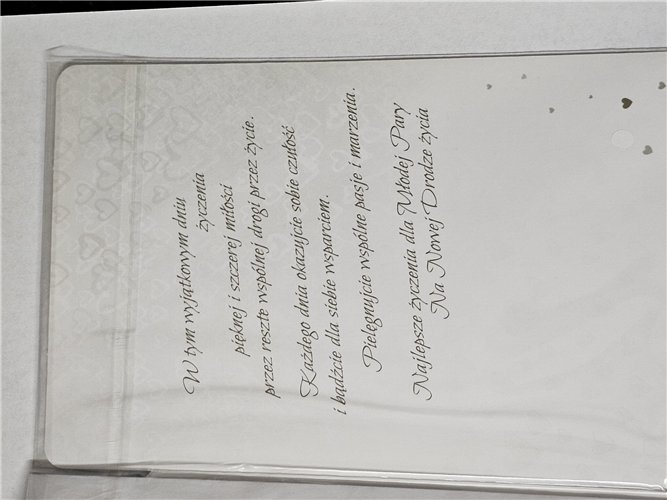 W tym wyjątkowym dniu
życzenia
pięknej i szczerej miłości
przez resztę wspólnej drogi przez życie.
Każdego dnia okazujcie sobie czułość
i bądźcie dla siebie wsparciem.
Pielęgnujcie wspólne pasje i marzenia.
Najlepsze życzenia dla Młodej Pary
Na Nowej Drodze życia